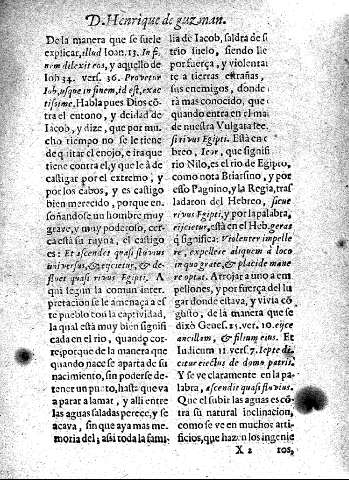 D. Henrique de guzman.
De la manera que se suele
explicar, illud Ioan. 13. In fi-
nem dilexit eos, y aquello de
Iob 34. vers. 36. Provetur
Iob, usque in finem, id est, exac
tissime, Habla pues Dios cō-
tra el entono, y deidad de
Iacob, y dize, que por mu-
cho tiempo no se le tiene
de quitar el enojo, e ira que
tiene contra el, y que le à de
castigar por el extremo, y
por los cabos, y es castigo
bien merecido, porque en-
soñandose un hombre muy
grave, y muy poderoso, cer-
ca està su ruyna, el castigo
es: Et ascendet quasi fluvius
universus, & eijcietur, & de-
fluet quasi rivus Egipti. A-
qui segun la comun inter-
pretacion se le amenaça a es-
te pueblo con la captividad,
la qual està muy bien signifi-
cada en el rio, quando cor-
re; porque de la manera que
quando nace se aparta de su
nacimiento, sin poderse de-
tener un punto, hasta que va
a parar a la mar, y alli entre
las aguas saladas perece, y se
acava, sin que aya mas me-
moria del; assi toda la fami-
lia de Iacob, saldra de s
trio suelo, siendo lle
por fuerça, y violentat
te a tierras estrañas,
sus enemigos, donde
rà mas conocido, que
quando entra en el ma
de nuestra Vulgata lee,
si rivus Egipti. Està en e
breo, Ieor, que signifi
rio Nilo, es el rio de Egipto,
como nota Briarsino, y por
esso Pagnino, y la Regia, tras
ladaron del Hebreo, sicut
rivus Egipti, y por la palabra,
eijcietur, està en el Heb. geras
q̄ significa: Violenter impelle
re, expellere aliquem à loco
in quo grate, & placide mane
re optat. Arrojar a uno a em
pellones, y por fuerça del lu
gar donde estava, y vivia cō
gusto, de la manera que se
dixò Genes. 21. ver. 10. eijce
ancillam, & filium eius. Et
Iudicum 11. vers. 7. Iepte di-
citur eiectus de domo patris.
Y se ve claramente en la pa-
labra, ascendit quasi fluvius.
Que el subir las aguas es cō
tra su natural inclinacion,
como se ve en muchos arti-
ficios, que hazen los ingenie
X 2 ros,